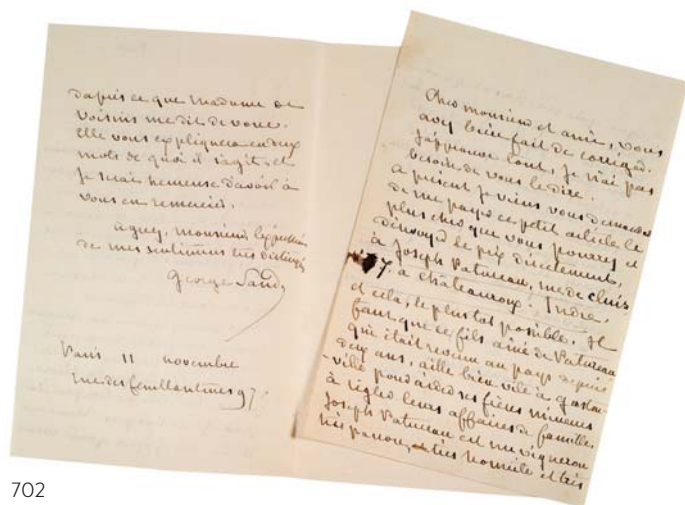 d'après ce que madame de
voisins me dit de vous.
elle vous expliquera en deux
mots de quoi il s'agit, et
je serais heureuse d'avoir à
vous en remercier.
agréez, monsieur l'expression
de mes sentiments très distingués
George Sand
Paris 11 novembre
rue des feuillantines 97
Cher monsieur et ami, vous
avez bien fait de corriger.
j'approuve tout, je n'ai pas
besoin de vous le dire.
a présent je viens vous demander
de me payer ce petit article le
plus cher que vous pourrez et
d'envoyer le prix directement,
à Joseph Patureau, rue de cluis
à chateauroux. Indre.
et cela, le plus tôt possible. Il
faut que ce fils ainé de Patureau
qui était revenu au pays depuis
deux ans, aille bien vite à gaston-
ville pour aider ses frères mineurs
à régler leurs affaires de famille.
Joseph Patureau est un vigneron
très pauvre, très honnête et très
702